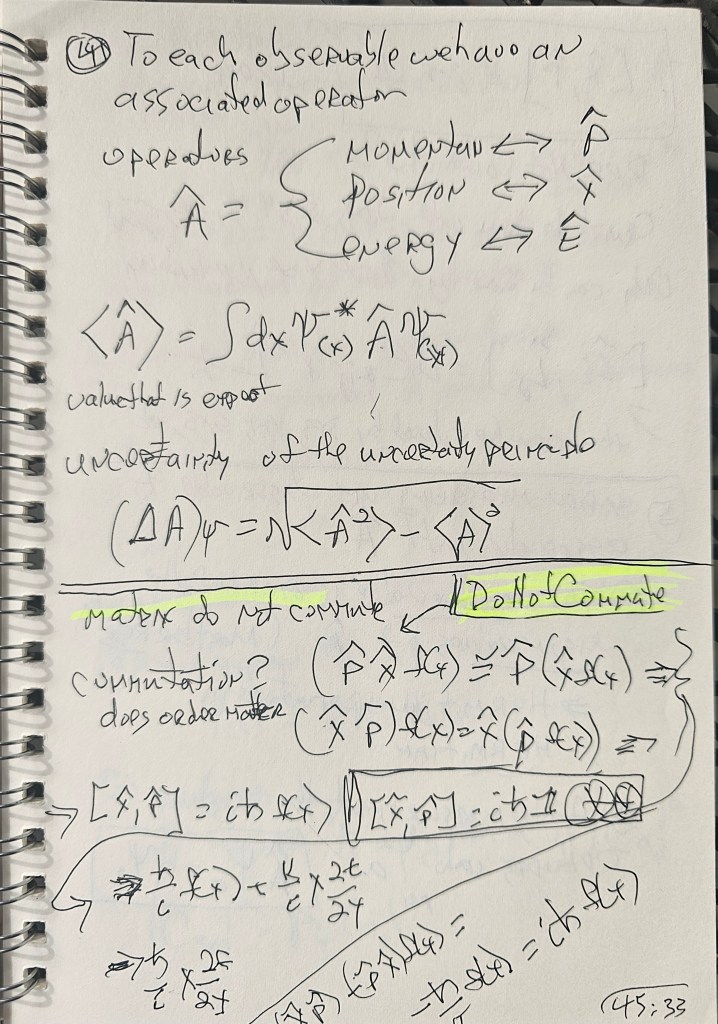 14 To each observable we have an
associated operator
operators
Â = {
Momentum ↔ P̂
Position ↔ X̂
energy ↔ Ê
⟨Â⟩ = ∫dx Ψ*(x) Â Ψ(x)
value that is expect
uncertainty of the uncertainty principle
(ΔA)ψ = √⟨Â²⟩ - ⟨A⟩²
Matrix do not commute
Do Not Commute
commutation? (P̂ X̂) f(x) = P̂(X̂ f(x)) ⇒
does order matter (X̂ P̂) f(x) = X̂(P̂ f(x)) ⇒
→ [X̂, P̂] = iħ f(x)
[X̂, P̂] = iħ 1
⇒ ħ/i f(x) + ħ/i x ∂f/∂x
⇒ ħ/i x ∂f/∂x
= iħ f(x)
45:33